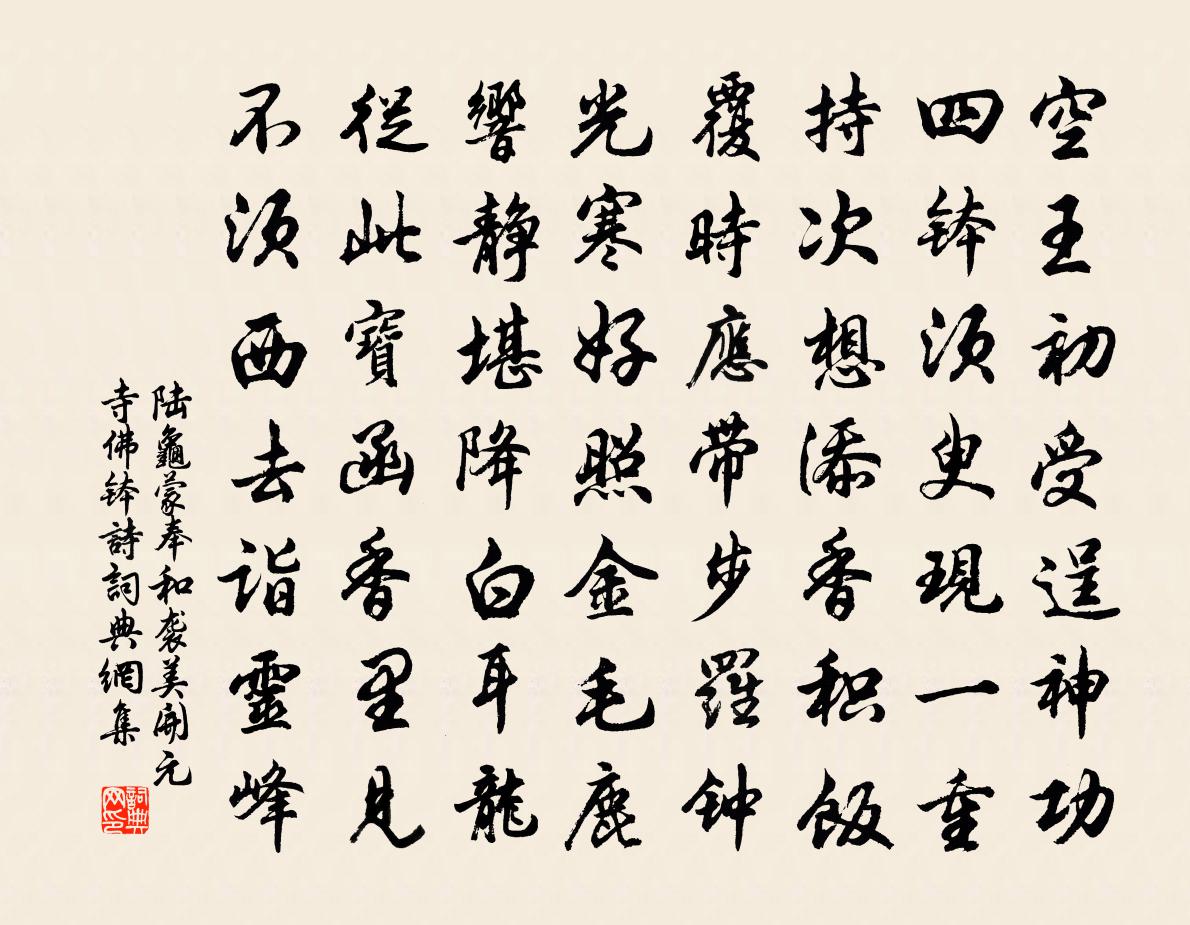 空王初受逞神功
四钵須臾現一重
持次想添香积飯
覆時應带步羅钟
光寒好照金毛鹿
響静堪降白耳龍
從此寶函香里見
不須西去詣靈峰
陆龜蒙奉和袭美開元
寺佛钵詩詞典網集
詞典网印